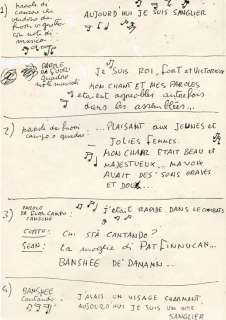 1) parole di
canzone che
AUJOURD'HUI JE SUIS SANGLIER
vengono da
fuori
con note di
musica
PAROLE
DA FUORI
quadro
note musicali
JE SUIS ROI, FORT ET VICTORIEUX
MON CHANT ET MES PAROLES
étaient agréables autrefois
dans les assemblées...
2) parole da fuori
campo o quadro
...PLAISANT aux JEUNES ET
JOLIES FEMMES.
MON CHAR ETAIT BEAU et
MAJESTUEUX... MA VOIX
AVAIT DES SONS GRAVES
ET DOUX
3) PAROLE
DA FUORI CAMPO
j'étais RAPIDE DANS LES COMBATS
CONTU:
CHI STÀ CANTANDO?
SEAN:
La moglie di PAT FINNUCAN...
BANSHEE DE' DANANN...
4) BANSHEE
cantando:
J'AVAIS UN VISAGE CHARMANT,
AUJOURD'HUI JE SUIS UN NOIR
SANGLIER